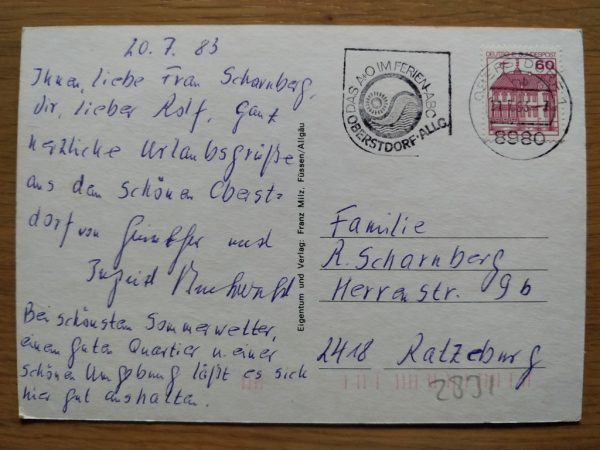 20.7.83
Ihnen, liebe Frau Scharnberg,
dir, lieber Rolf, ganz
herzliche Urlaubsgrüße
aus dem schönen Oberst-
dorf von Günther und
Ingrid
Bei schönstem Sommerwetter,
einem guten Quartier u. einer
schönen Umgebung läßt es sich
hier gut aushalten.
Eigentum und Verlag: Franz Milz, Füssen/Allgäu
DAS A+O IM FERIEN-ABC
OBERSTDORF·ALLG.
DEUTSCHE BUNDESPOST
60
OBERSTDORF 1
8980
Familie
R. Scharnberg
Herrenstr. 9b
2418 Ratzeburg
2891